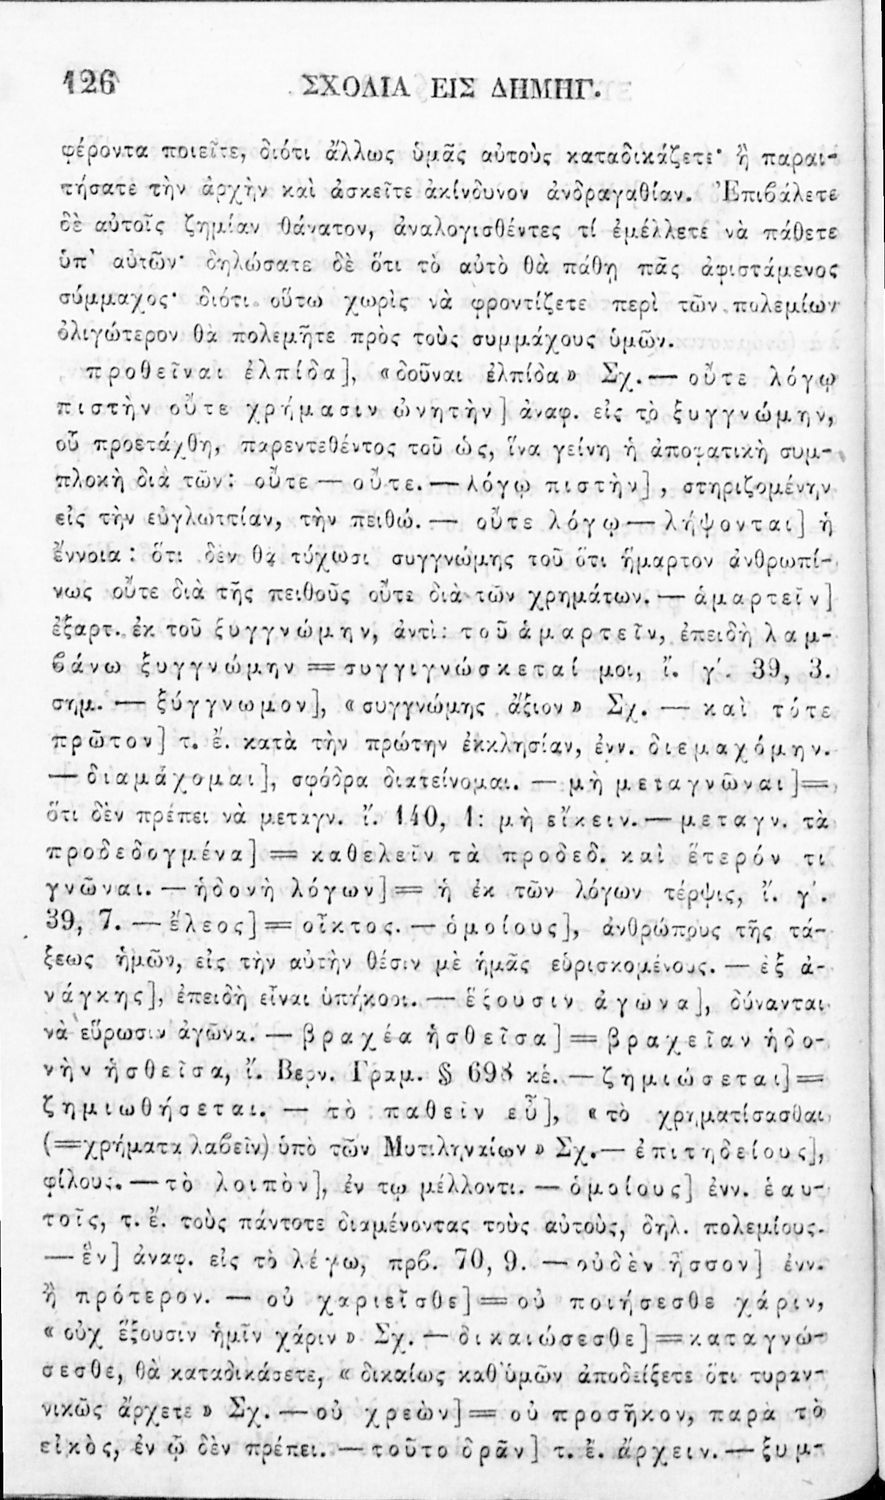 126 ΣΧΟΛΙΑ ΕΙΣ ΔΗΜΗΓ.
φέροντα ποιεῖτε, διότι ἄλλως ὑμᾶς αὐτοὺς καταδικάζετε· ἢ παραι-
τήσατε τὴν ἀρχὴν καὶ ἀσκεῖτε ἀκίνδυνον ἀνδραγαθίαν. Ἐπιβάλετε
δὲ αὐτοῖς ζημίαν θάνατον, ἀναλογισθέντες τί ἐμέλλετε νὰ πάθετε
ὑπ' αὐτῶν· δηλώσατε δὲ ὅτι τὸ αὐτὸ θὰ πάθῃ πᾶς ἀφιστάμενος
σύμμαχος· διότι οὕτω χωρὶς νὰ φροντίζετε περὶ τῶν πολεμίων
ὀλιγώτερον θὰ πολεμῆτε πρὸς τοὺς συμμάχους ὑμῶν.
προθεῖναι ἐλπίδα], «δοῦναι ἐλπίδα» Σχ.— οὔτε λόγῳ
πιστὴν οὔτε χρήμασιν ὠνητὴν] ἀναφ. εἰς τὸ ξυγγνώμην,
οὗ προετάχθη, παρεντεθέντος τοῦ ὡς, ἵνα γείνῃ ἡ ἀποφατικὴ συμ-
πλοκὴ διὰ τῶν: οὔτε — οὔτε.— λόγῳ πιστὴν], στηριζομένην
εἰς τὴν εὐγλωττίαν, τὴν πειθώ. — οὔτε λόγῳ — λήψονται] ἡ
ἔννοια: ὅτι δὲν θὰ τύχωσι συγγνώμης τοῦ ὅτι ἥμαρτον ἀνθρωπί-
νως οὔτε διὰ τῆς πειθοῦς οὔτε διὰ τῶν χρημάτων.— ἁμαρτεῖν]
ἐξαρτ. ἐκ τοῦ ξυγγνώμην, ἀντὶ: τοῦ ἁμαρτεῖν, ἐπειδὴ λαμ-
βάνω ξυγγνώμην = συγγιγνώσκεταί μοι, ἴ. γ'. 39, 3.
σημ. — ξύγγνωμον], «συγγνώμης ἄξιον» Σχ. — καὶ τότε
πρῶτον] τ. ἔ. κατὰ τὴν πρώτην ἐκκλησίαν, ἐνν. διεμαχόμην.
— διαμάχομαι], σφόδρα διατείνομαι. — μὴ μεταγνῶναι]=
ὅτι δὲν πρέπει νὰ μεταγν. ἴ. 140, 1: μὴ εἴκειν.— μεταγν. τὰ
προδεδογμένα] = καθελεῖν τὰ προδεδ. καὶ ἕτερόν τι
γνῶναι. — ἡδονὴ λόγων] = ἡ ἐκ τῶν λόγων τέρψις, ἴ. γ'.
39, 7. — ἔλεος] = οἶκτος. — ὁμοίους], ἀνθρώπους τῆς τά-
ξεως ἡμῶν, εἰς τὴν αὐτὴν θέσιν μὲ ἡμᾶς εὑρισκομένους. — ἐξ ἀ-
νάγκης], ἐπειδὴ εἶναι ὑπήκοοι. — ἕξουσιν ἀγῶνα], δύνανται
νὰ εὕρωσιν ἀγῶνα. — βραχέα ἡσθεῖσα] = βραχεῖαν ἡδο-
νὴν ἡσθεῖσα, ἴ. Βερν. Γραμ. § 698 κἑ. — ζημιώσεται] =
ζημιωθήσεται. — τὸ παθεῖν εὖ], «τὸ χρηματίσασθαι
(=χρήματα λαβεῖν) ὑπὸ τῶν Μυτιληναίων» Σχ.— ἐπιτηδείους],
φίλους. — τὸ λοιπὸν], ἐν τῳ μέλλοντι. — ὁμοίους] ἐνν. ἑαυ-
τοῖς, τ. ἔ. τοὺς πάντοτε διαμένοντας τοὺς αὐτοὺς, δηλ. πολεμίους.
— ἓν] ἀναφ. εἰς τὸ λέγω, πρβ. 70, 9. — οὐδὲν ἧσσον] ἐνν.
ἢ πρότερον. — οὐ χαριεῖσθε] = οὐ ποιήσεσθε χάριν,
«οὐχ ἕξουσιν ἡμῖν χάριν» Σχ. — δικαιώσεσθε] = καταγνώ-
σεσθε, θὰ καταδικάσετε, «δικαίως καθ' ὑμῶν ἀποδείξετε ὅτι τυραν-
νικῶς ἄρχετε» Σχ. — οὐ χρεὼν] = οὐ προσῆκον, παρὰ τὸ
εἰκὸς, ἐν ᾧ δὲν πρέπει. — τοῦτο δρᾶν] τ. ἔ. ἄρχειν. — ξυμ-